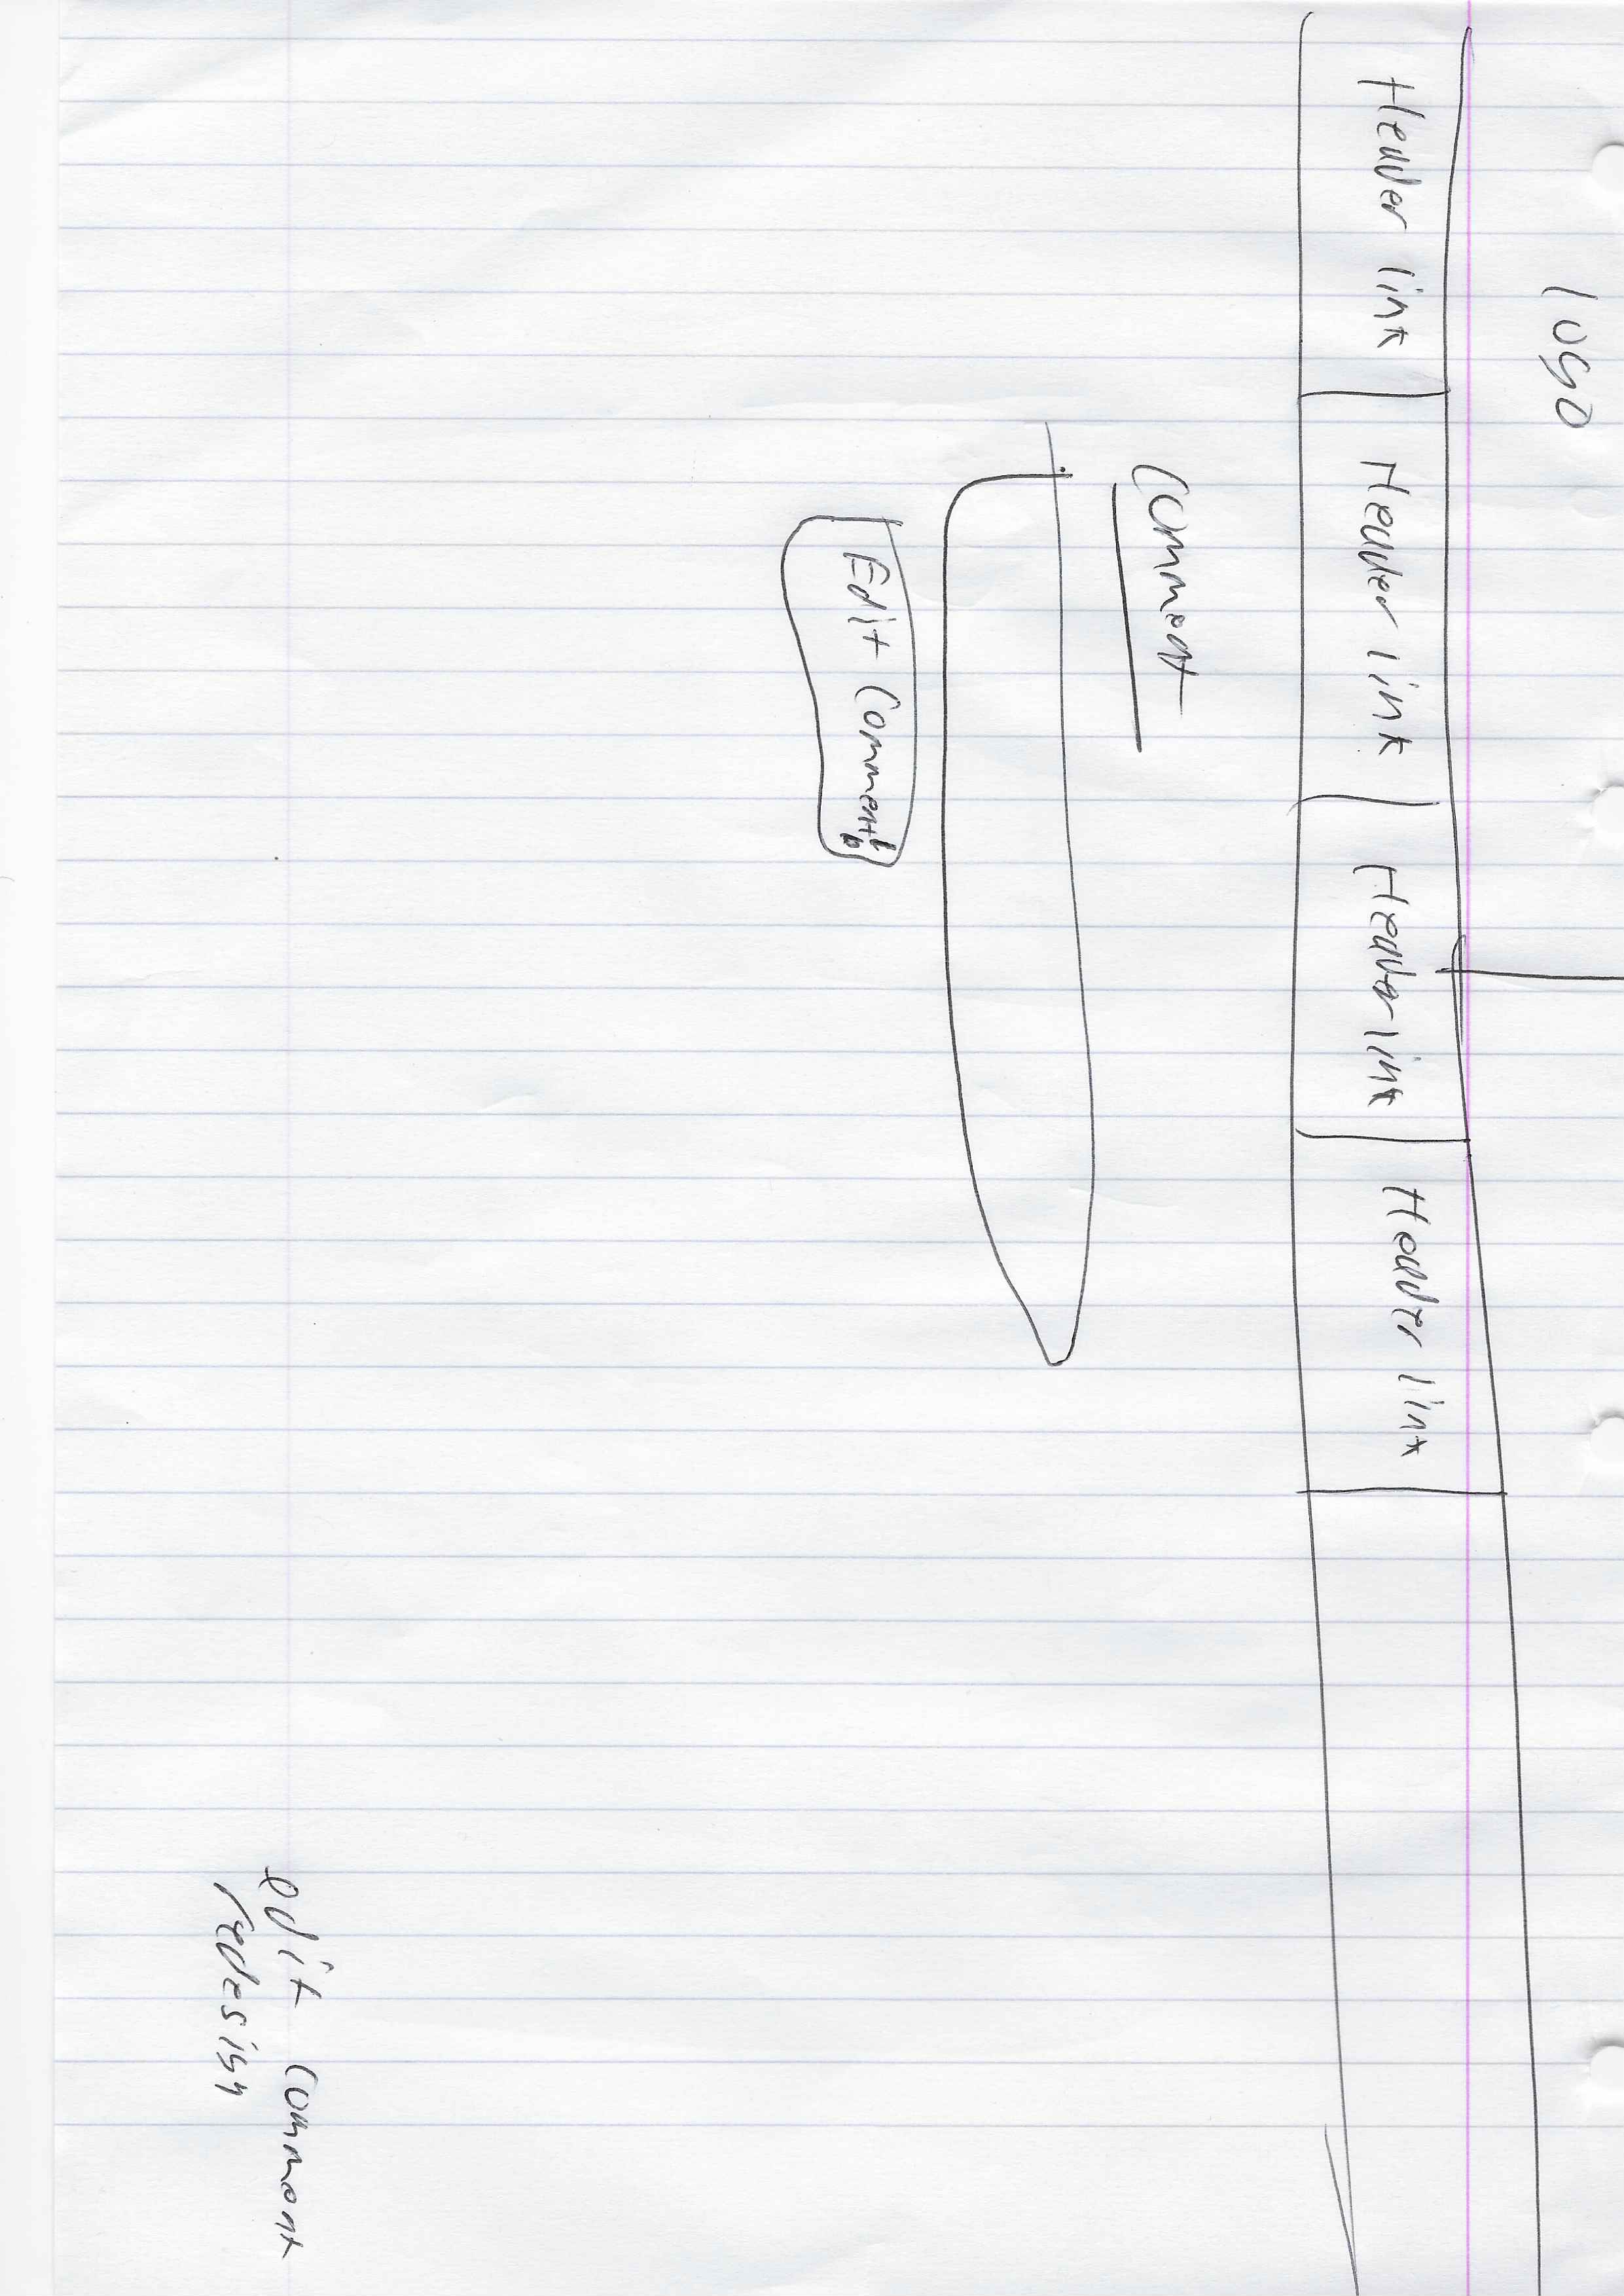 logo
Header link Header link Header link Header link
Comment
Edit Comment!
edit comment
redesign